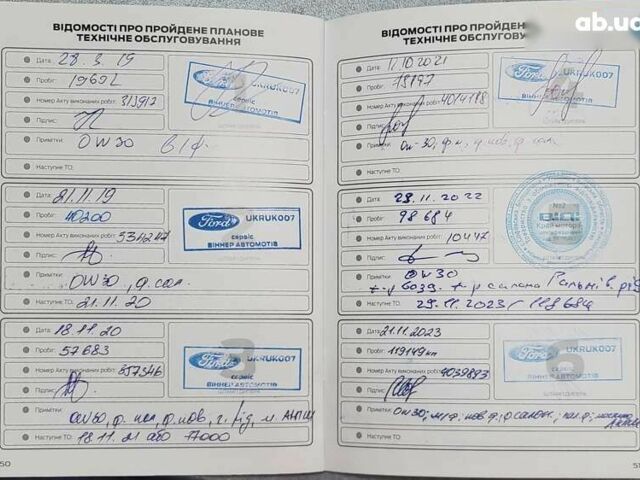 ВІДОМОСТІ ПРО ПРОЙДЕНЕ ПЛАНОВЕ
ТЕХНІЧНЕ ОБСЛУГОВУВАННЯ
Дата: 28.3.19
Пробіг: 19692
Номер Акту виконаних робіт: 313912
Підпис:
Примітки: OW30 в/ф.
Наступне ТО:
Ford UKRUK007
сервіс
ВІННЕР АВТОМОТІВ
Дата: 21.11.19
Пробіг: 40200
Номер Акту виконаних робіт: 534247
Підпис:
Примітки:
OW30, ф. сал.
Наступне ТО: 21.11.20
Ford UKRUK007
сервіс
ВІННЕР АВТОМОТІВ
Дата: 18.11.20
Пробіг: 57683
Номер Акту виконаних робіт: 857346
Підпис:
Примітки:
OW30, ф. пов, г. рід, м. АКПП
Наступне ТО: 18.11.21 або 77000
Ford UKRUK007
сервіс
ВІННЕР АВТОМОТІВ
50
ВІДОМОСТІ ПРО ПРОЙДЕН
ТЕХНІЧНЕ ОБСЛУГОВУ
ab.ua
Дата: 10.2021
Пробіг: 78177
Номер Акту виконаних робіт: 4014118
Підпис:
Примітки: OW-30, ф.м, ф.пов, ф. сал.
Наступне ТО:
Ford UKRUK007
сервіс
ВІННЕР АВТОМОТІВ
Дата: 29.11.2022
Пробіг: 98684
Номер Акту виконаних робіт: 10447
Підпис:
Примітки: OW30
+ф возд. +ф салона Гальмів. рід
Наступне ТО: 29.11.2023 / 118684
Дата: 21.11.2023
Пробіг: 119149км
Номер Акту виконаних робіт: 4039893
Підпис:
Примітки: OW30; м/ф; пов ф; ф салон.;
Наступне ТО:
Ford UKRUK007
сервіс
ВІННЕР АВТОМОТІВ
51